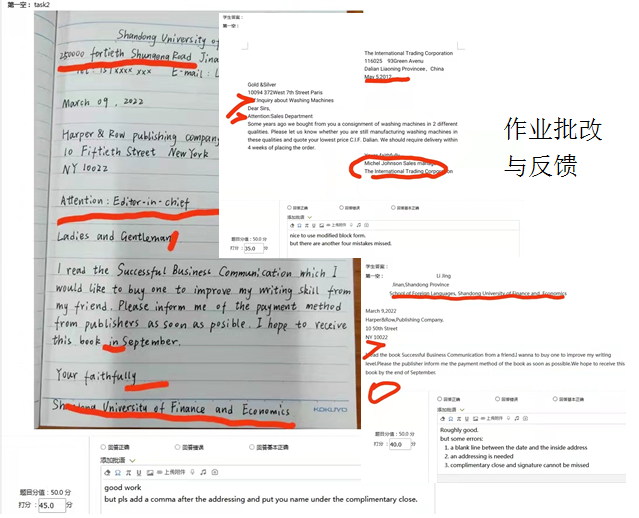 第一空： task2
Shandong University of
250000 fortieth Shungeng Road Jina
Tel: 151xxxx xxx E-mail: L
March 09, 2022
Harper & Row publishing company
10 Fiftieth Street New York
NY 10022
Attention: Editor-in-chief
Ladies and Gentleman
I read the Successful Business Communication which I
would like to buy one to improve my writing skill from
my friend. Please inform me of the payment method
from publishers as soon as posible. I hope to receive
this book in September.
Your faithfully
Shandong University of Finance and Economics
KOKUYO
回答正确 回答错误 回答基本正确
添加批语
上传附件
题目分值：50.0 分
打分： 45.0 分
good work
but pls add a comma after the addressing and put you name under the complimentary close.
学生答案：
第一空：
The International Trading Corporation
116025 93Green Avenu
Dalian Liaoning Provincee，China
May 5,2012
Gold &Silver
10094 372West 7th Street Paris
Inquiry about Washing Machines
Dear Sirs,
Attention:Sales Department
Some years ago we bought from you a consignment of washing machines in 2 different
qualities. Please let us know whether you are still manufacturing washing machines in
these qualities and quote your lowest price C.I.F. Dalian. We should require delivery within
4 weeks of placing the order.
Michel Johnson Sales manager
The International Trading Corporation
回答正确 回答错误 回答基本正确
添加批语
上传附件
题目分值：50.0 分
打分： 35.0 分
nice to use modified block form.
but there are another four mistakes missed,
作业批改
与反馈
学生答案：
第一空：
Li Jing
Jinan,Shandong Province
School of Foreign Languages, Shandong University of Finance and Economics
March 9,2022
Harper&Row,Publishing Company.
10 50th Street
NY 10022
I read the book Successful Business Communication from a friend.I wanna to buy one to improve my writing
level.Please the publisher inform me the payment method of the book as soon as possible.We hope to receive this
book by the end of September.
回答正确 回答错误 回答基本正确
添加批语
上传附件
题目分值：50.0 分
打分： 40.0 分
Roughly good.
but some errors:
1. a blank line between the date and the inside address
2. an addressing is needed
3. complimentary close and signature cannot be missed